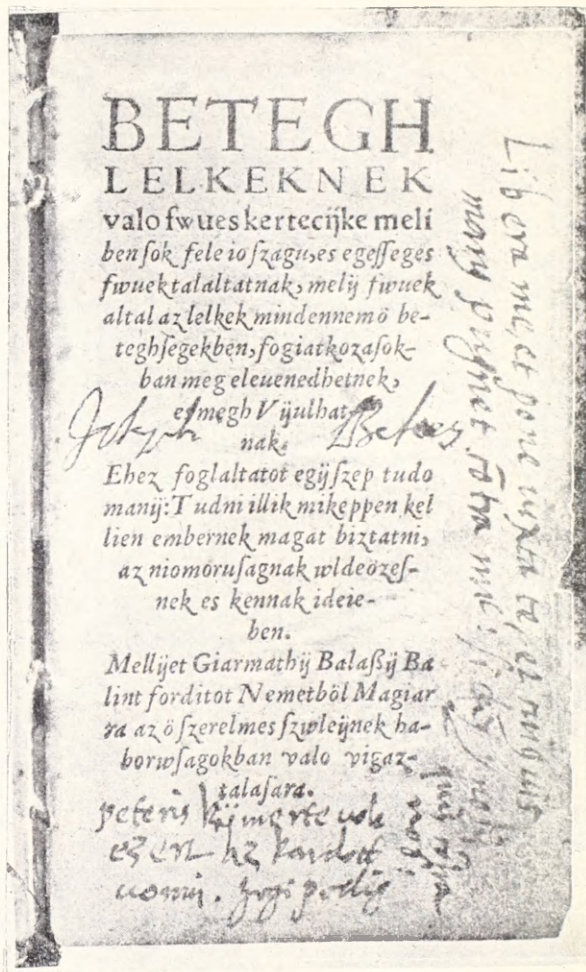 BETEGH
LELKEKNEK
valo fwues kertecijke meli
ben ſok fele io ſzagu, es egeſſeges
fwuek talaltatnak, melij fwuek
altal az lelkek mindennemö be-
teghſegekben, fogiatkozaſok-
ban meg eleuenedhetnek,
es megh Vijulhat
nak.
Ehez foglaltatot egij ſzep tudo
manij: Tudni illik mikeppen kel
lien embernek magat biztatni,
az niomoruſagnak wldeözeſ-
nek es kennak ideie-
ben.
Mellijet Giarmathij Balaßij Ba
lint forditot Nemetböl Magiar
ra az ö ſzerelmes ſzwleijnek ha-
borwſagokban valo vigaz-
talaſara.
ezert az kardot
Libera me et pone iuxta te, et